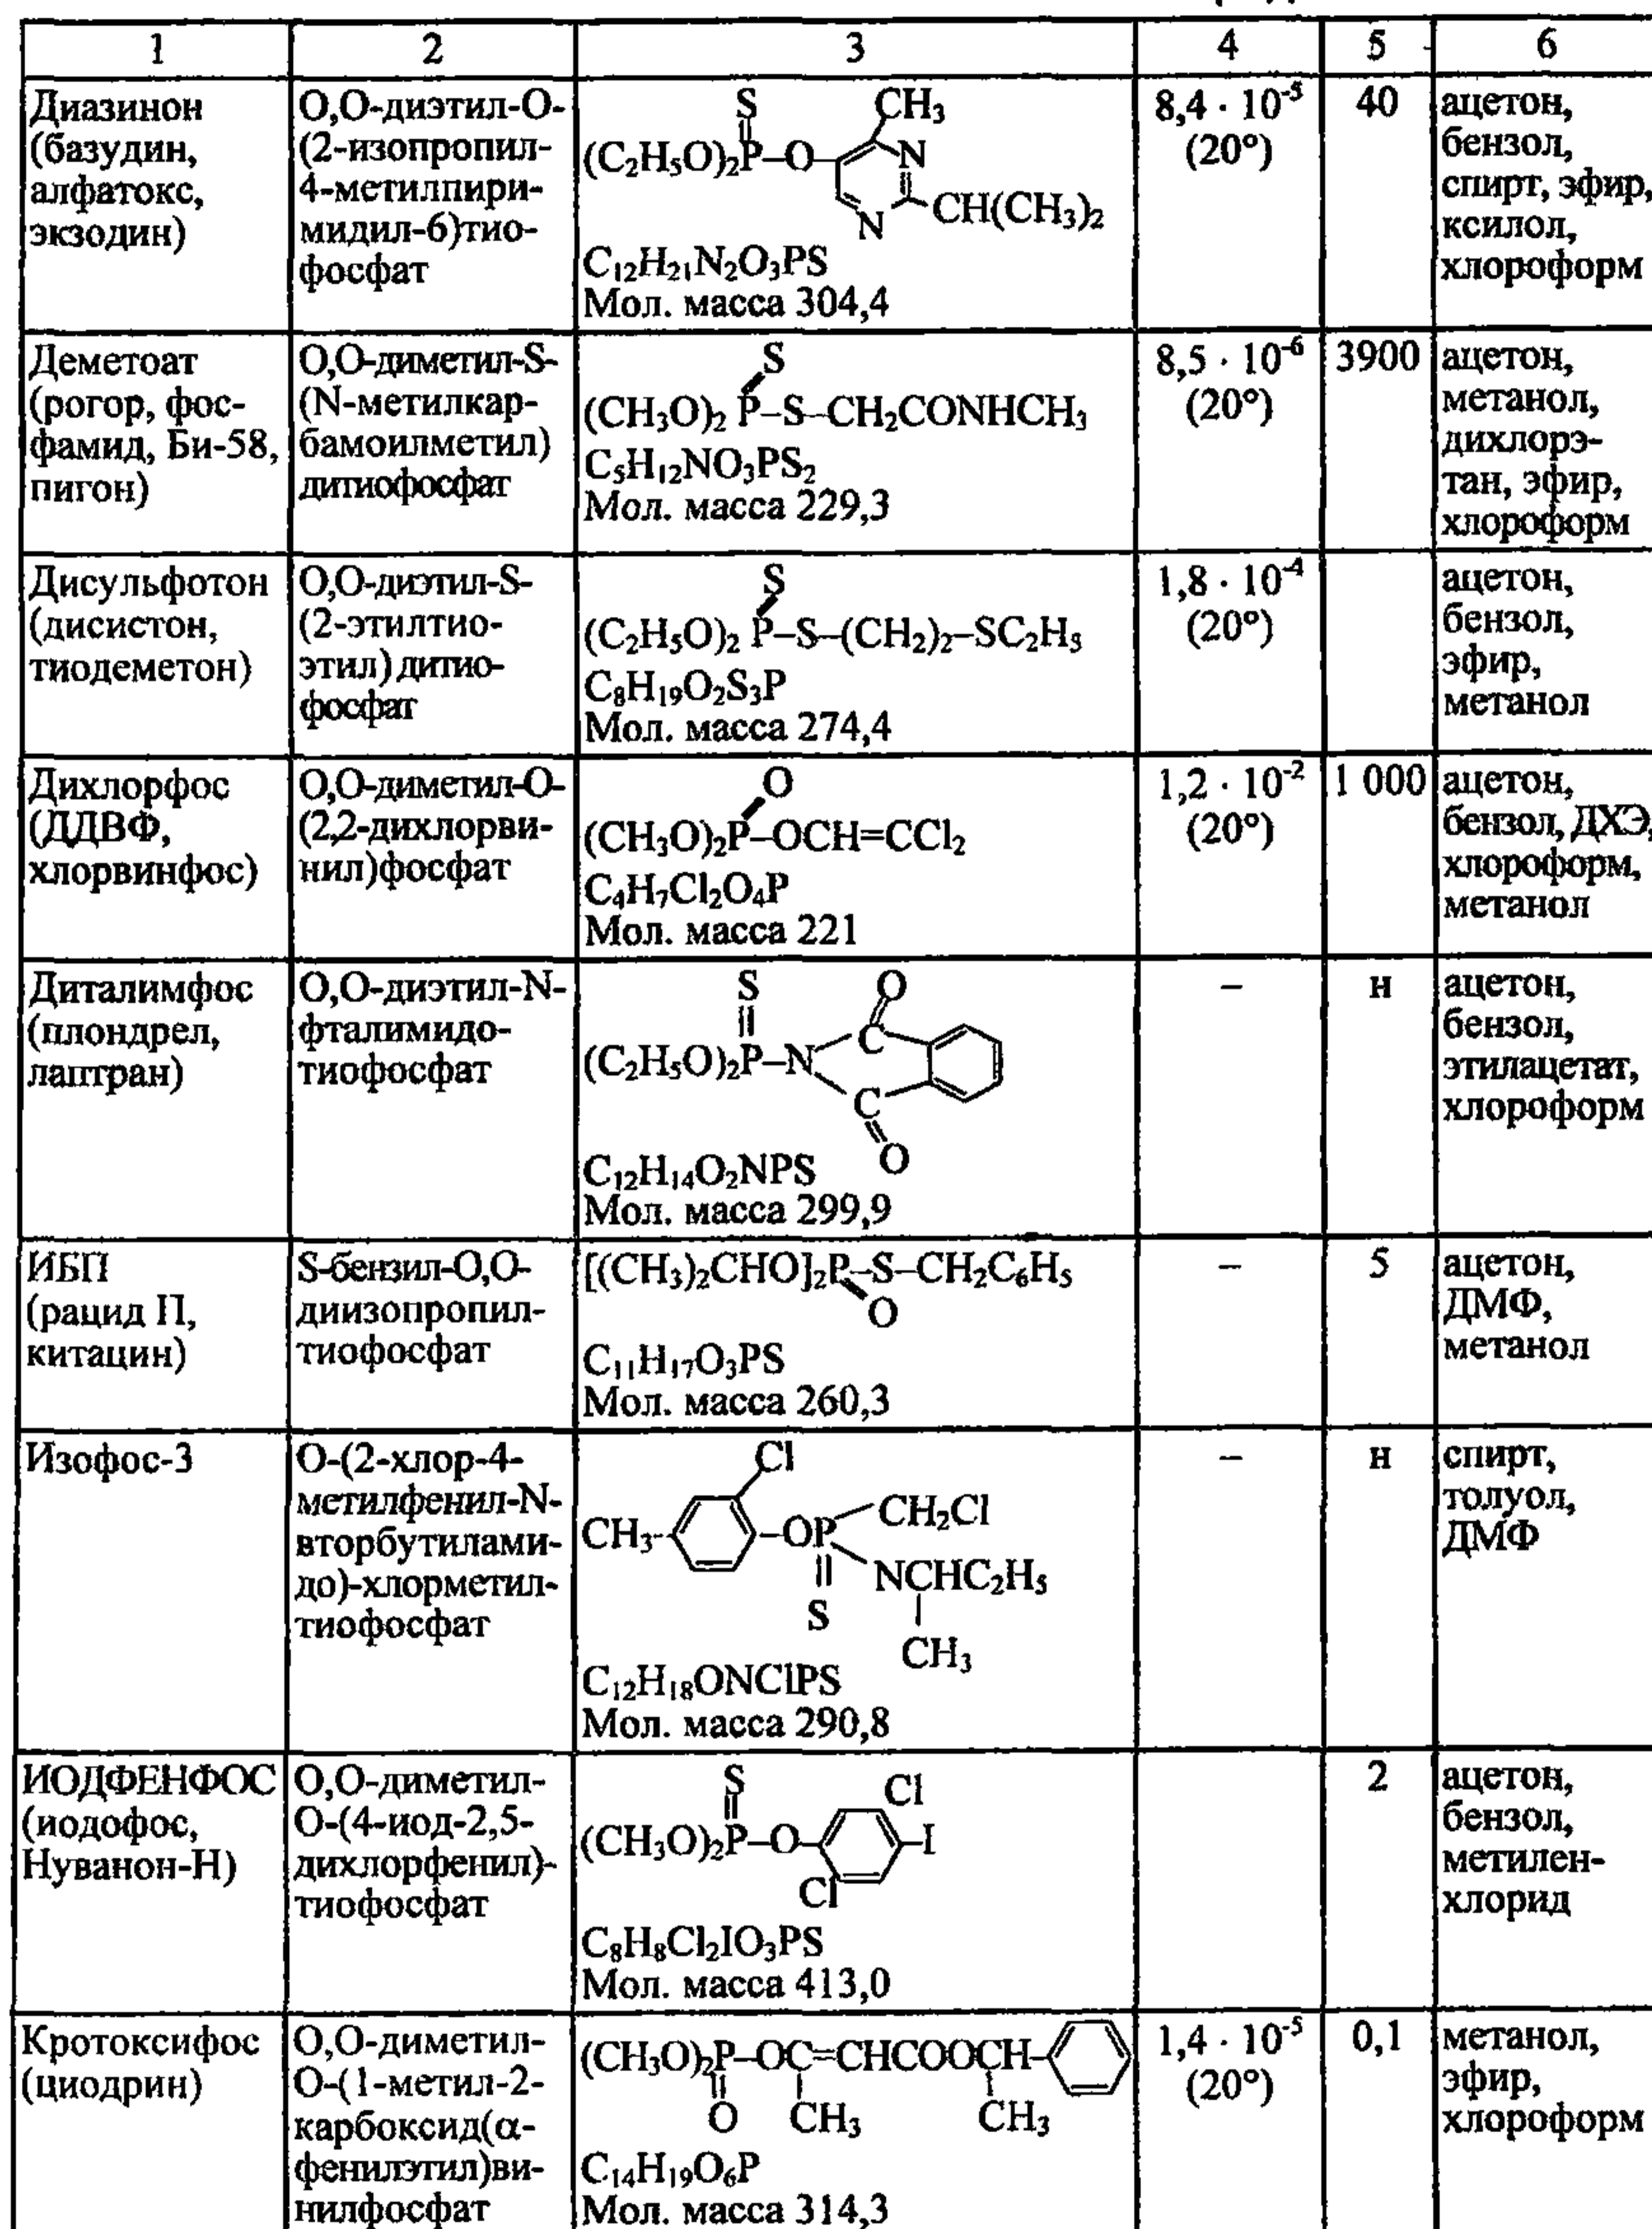 1 2 3 4 5 6
Диазинон
(базудин,
алфатокс,
экзодин)
О,О-диэтил-О-
(2-изопропил-
4-метилпири-
мидил-6)тио-
фосфат
S CH₃
(C₂H₅O)₂P–O– N
N CH(CH₃)₂
C₁₂H₂₁N₂O₃PS
Мол. масса 304,4
8,4 · 10⁻⁵
(20°)
40
ацетон,
бензол,
спирт, эфир,
ксилол,
хлороформ
Деметоат
(рогор, фос-
фамид, Би-58,
пигон)
О,О-диметил-S-
(N-метилкар-
бамоилметил)
дитиофосфат
S
(CH₃O)₂ P–S–CH₂CONHCH₃
C₅H₁₂NO₃PS₂
Мол. масса 229,3
8,5 · 10⁻⁶
(20°)
3900
ацетон,
метанол,
дихлорэ-
тан, эфир,
хлороформ
Дисульфотон
(дисистон,
тиодеметон)
О,О-диэтил-S-
(2-этилтио-
этил) дитио-
фосфат
S
(C₂H₅O)₂ P–S–(CH₂)₂–SC₂H₅
C₈H₁₉O₂S₃P
Мол. масса 274,4
1,8 · 10⁻⁴
(20°)
ацетон,
бензол,
эфир,
метанол
Дихлорфос
(ДДВФ,
хлорвинфос)
О,О-диметил-О-
(2,2-дихлорви-
нил)фосфат
O
(CH₃O)₂P–OCH=CCl₂
C₄H₇Cl₂O₄P
Мол. масса 221
1,2 · 10⁻²
(20°)
1 000
ацетон,
бензол, ДХЭ,
хлороформ,
метанол
Диталимфос
(плондрел,
лаптран)
О,О-диэтил-N-
фталимидо-
тиофосфат
S O
C
(C₂H₅O)₂P–N
C
O
C₁₂H₁₄O₂NPS
Мол. масса 299,9
–
н
ацетон,
бензол,
этилацетат,
хлороформ
ИБП
(рацид П,
китацин)
S-бензил-О,О-
диизопропил-
тиофосфат
[(CH₃)₂CHO]₂P–S–CH₂C₆H₅
O
C₁₁H₁₇O₃PS
Мол. масса 260,3
–
5
ацетон,
ДМФ,
метанол
Изофос-3
О-(2-хлор-4-
метилфенил-N-
вторбутилами-
до)-хлорметил-
тиофосфат
Cl
CH₂Cl
CH₃– –OP
NCHC₂H₅
S
CH₃
C₁₂H₁₈ONClPS
Мол. масса 290,8
–
н
спирт,
толуол,
ДМФ
ИОДФЕНФОС
(иодофос,
Нуванон-Н)
О,О-диметил-
О-(4-иод-2,5-
дихлорфенил)-
тиофосфат
S Cl
(CH₃O)₂P–O– –I
Cl
C₈H₈Cl₂IO₃PS
Мол. масса 413,0
2
ацетон,
бензол,
метилен-
хлорид
Кротоксифос
(циодрин)
О,О-диметил-
О-(1-метил-2-
карбоксид(α-
фенилэтил)ви-
нилфосфат
(CH₃O)₂P–OC=CHCOOCH–
O CH₃ CH₃
C₁₄H₁₉O₆P
Мол. масса 314,3
1,4 · 10⁻⁵
(20°)
0,1
метанол,
эфир,
хлороформ